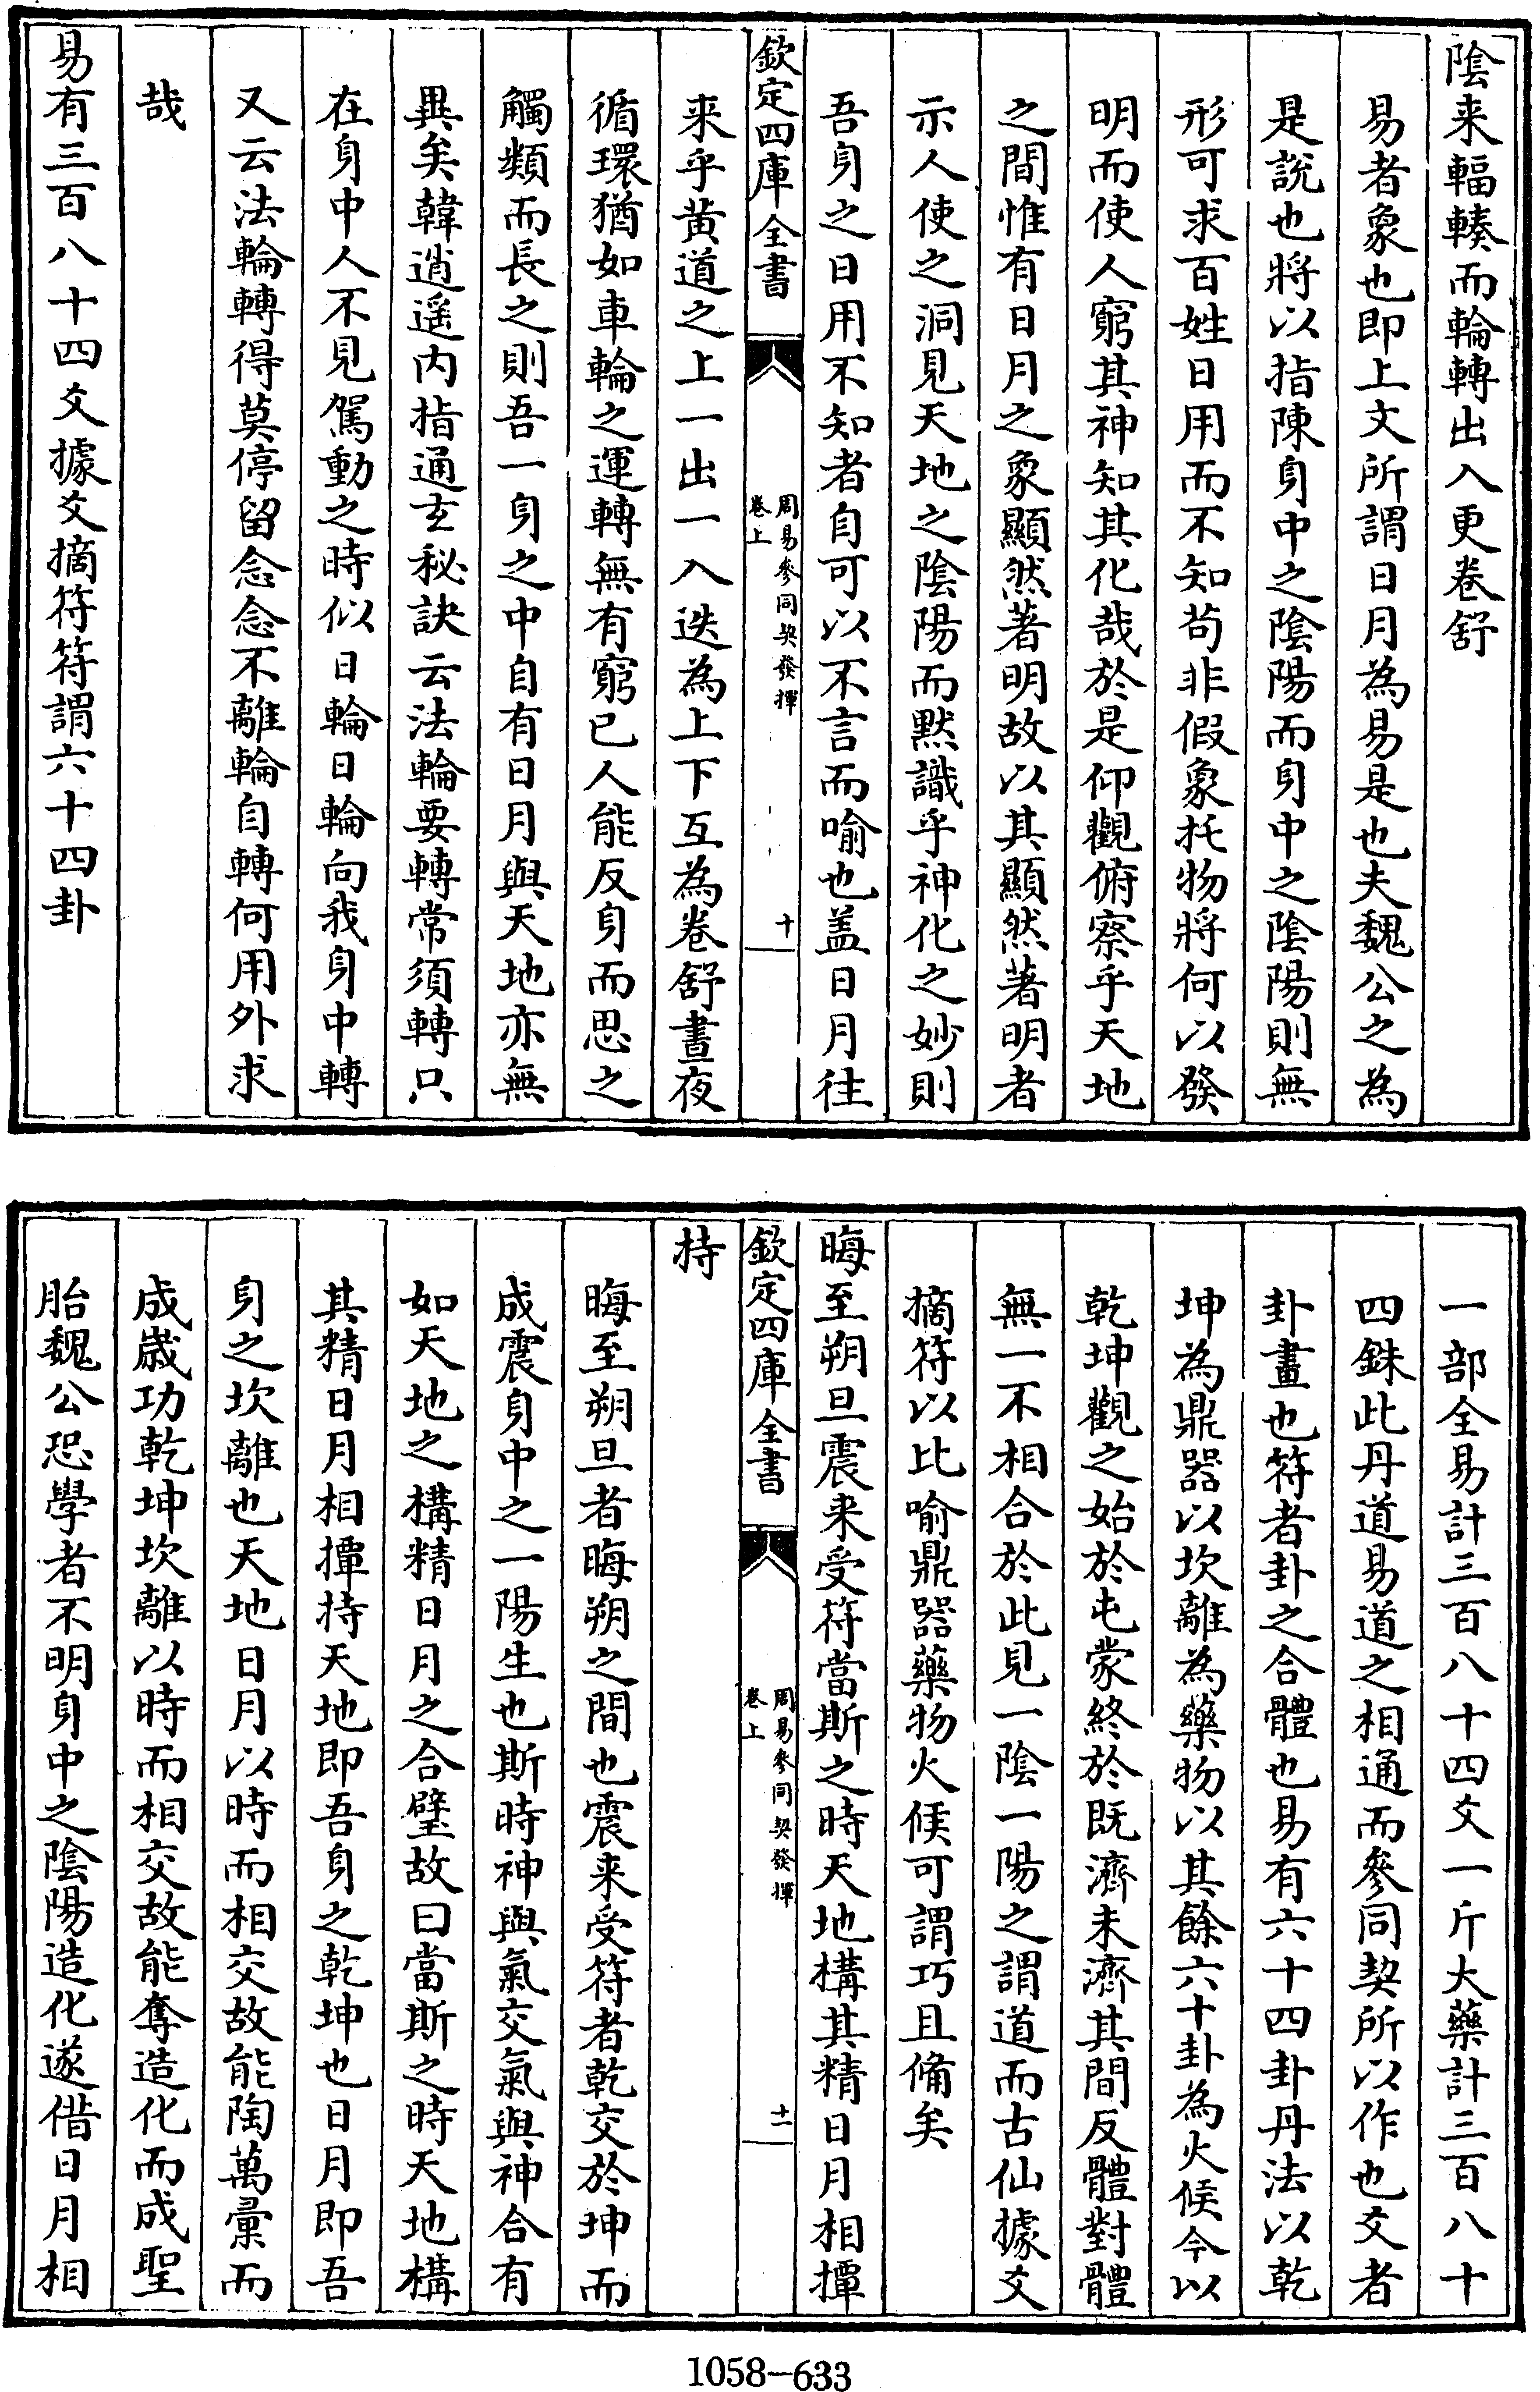 陰来輻輳而輪轉出入更卷舒
易者象也即上文所謂日月為易是也夫魏公之為
是說也將以指陳身中之陰陽而身中之陰陽則無
形可求百姓日用而不知苟非假象托物將何以發
明而使人窮其神知其化哉於是仰觀俯察乎天地
之間惟有日月之象顯然著明故以其顯然著明者
示人使之洞見天地之陰陽而黙識乎神化之妙則
吾身之日用不知者自可以不言而喻也盖日月往
欽定四庫全書
周易參同契發揮
卷上
十
来乎黄道之上一出一入迭為上下互為卷舒晝夜
循環猶如車輪之運轉無有窮已人能反身而思之
觸類而長之則吾一身之中自有日月與天地亦無
異矣韓逍遥内指通玄秘訣云法輪要轉常須轉只
在身中人不見駕動之時似日輪日輪向我身中轉
又云法輪轉得莫停留念念不離輪自轉何用外求
哉
易有三百八十四爻據爻摘符符謂六十四卦
一部全易計三百八十四爻一斤大藥計三百八十
四銖此丹道易道之相通而參同契所以作也爻者
卦畫也符者卦之合體也易有六十四卦丹法以乾
坤為鼎器以坎離為藥物以其餘六十卦為火候今以
乾坤觀之始於屯蒙終於既濟未濟其間反體對體
無一不相合於此見一陰一陽之謂道而古仙據爻
摘符以比喻鼎器藥物火候可謂巧且備矣
晦至朔旦震来受符當斯之時天地構其精日月相撢
欽定四庫全書
周易參同契發揮
卷上
十一
持
晦至朔旦者晦朔之間也震来受符者乾交於坤而
成震身中之一陽生也斯時神與氣交氣與神合有
如天地之構精日月之合璧故曰當斯之時天地構
其精日月相撢持天地即吾身之乾坤也日月即吾
身之坎離也天地日月以時而相交故能陶萬彚而
成歳功乾坤坎離以時而相交故能奪造化而成聖
胎魏公恐學者不明身中之陰陽造化遂借日月相
1058-633